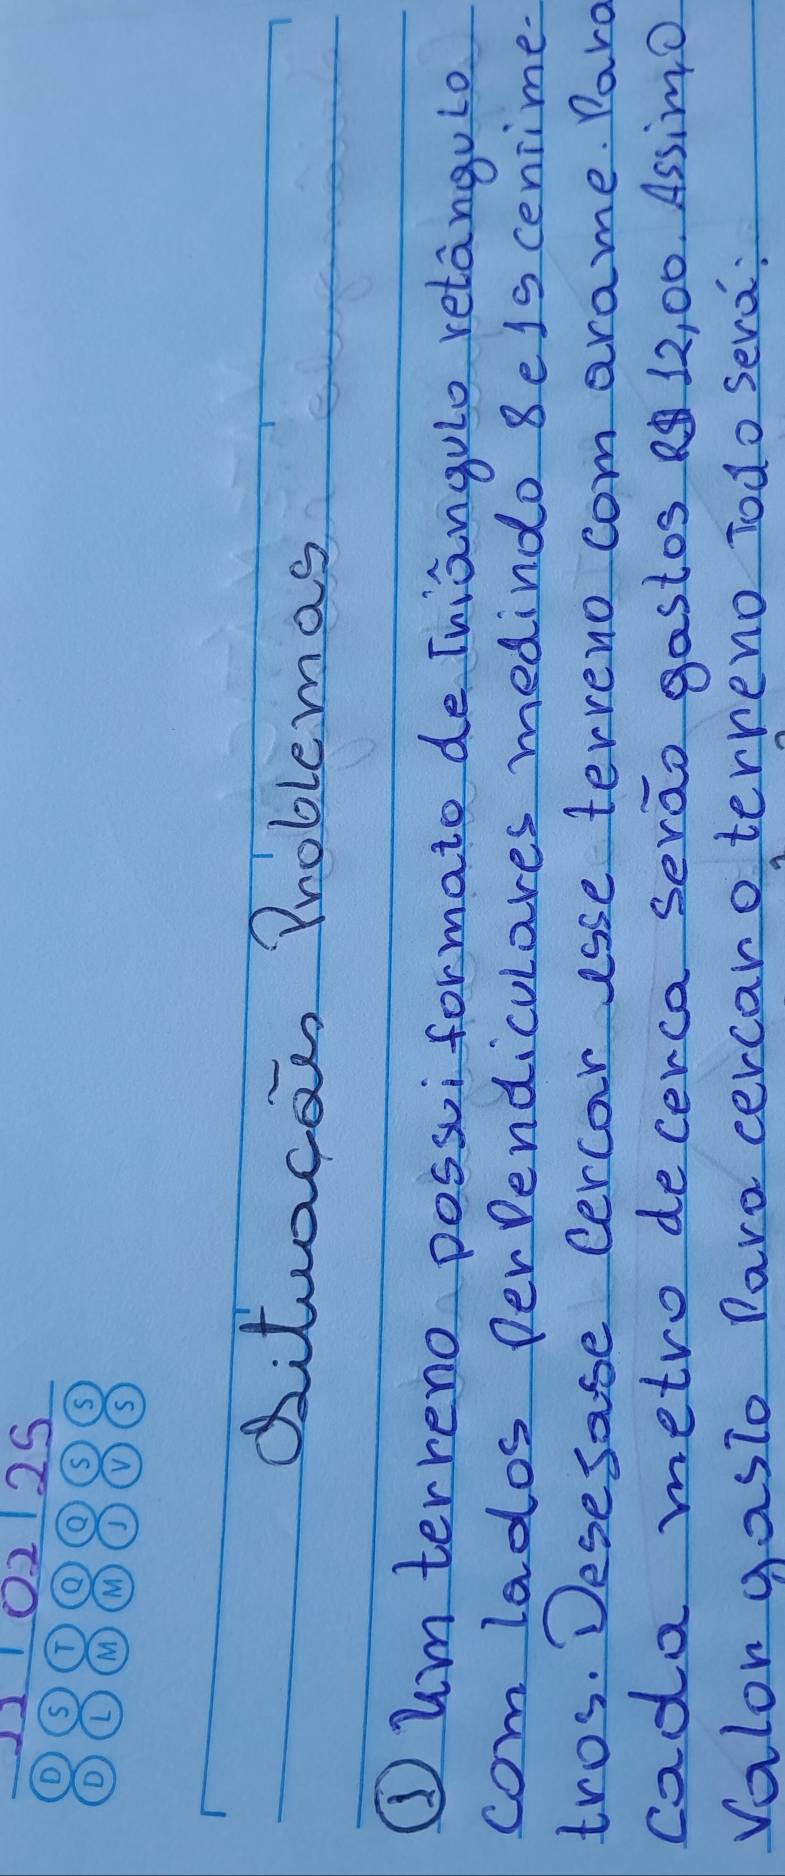 11 / 02 / 25
D S T Q Q S S
D L M M J V S
Situações Problemas
① Um terreno possui formato de Triângulo retângulo
com lados perpendiculares medindo 8 e 15 centime-
tros. Desejase cercar esse terreno com arame. Para
cada metro de cerca serão gastos R$ 12,00. Assim o
valor gasto Para cercar o terreno Todo será: